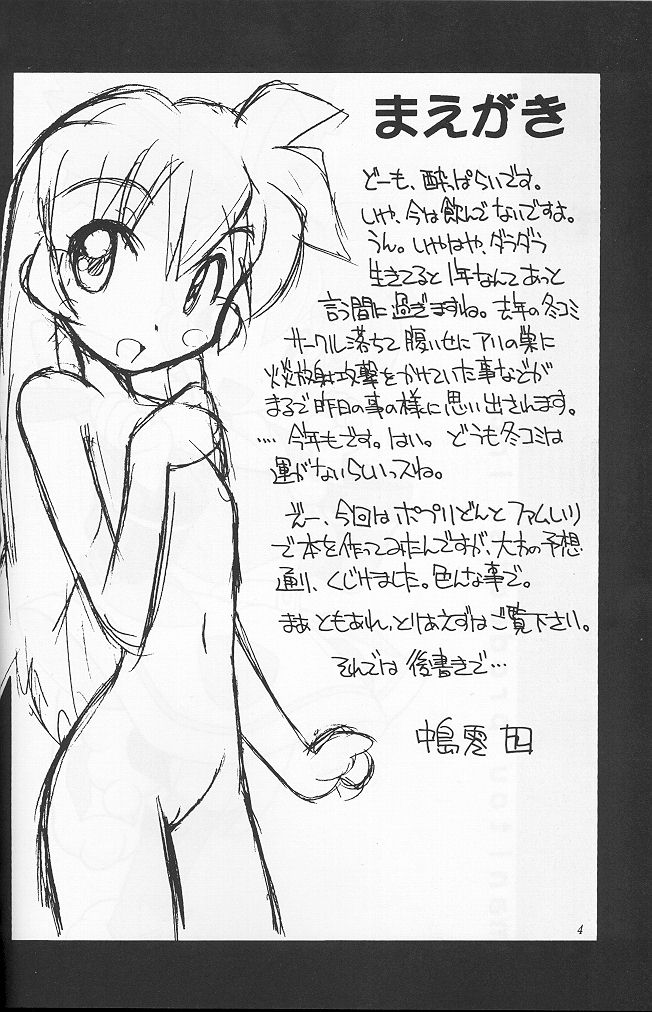 まえがき
どーも、酔っぱらいです。
しゃ、今は飲んでないですよ。
うん。しゃはや、ダラダラ
生きてると1年なんてあっと
言う間に過ぎますね。去年の冬コミ
サークル落ちて腹いせにアリの巣に
火炎放射攻撃をかけていた事などが
まるで昨日の事の様に思い出されます。
‥‥今年もです。はい。どうも冬コミは
運がないらしいっスね。
えー、今回はポプリどんとファムしリ
で本を作ってみたんですが、大方の予想
通り、くじけました。色んな事で。
まぁともあれ、とりあえずはご覧下さい。
それでは後書きで…
中島零
4